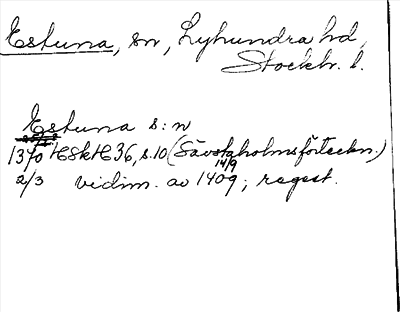 Estuna, sn, Lyhundra hd,
Stockh. l.
Estuna s:n
1370 HSkH 36, s. 10 (Sävstaholmsförteckn.)
14/9
2/3 vidim. av 1409; regest.